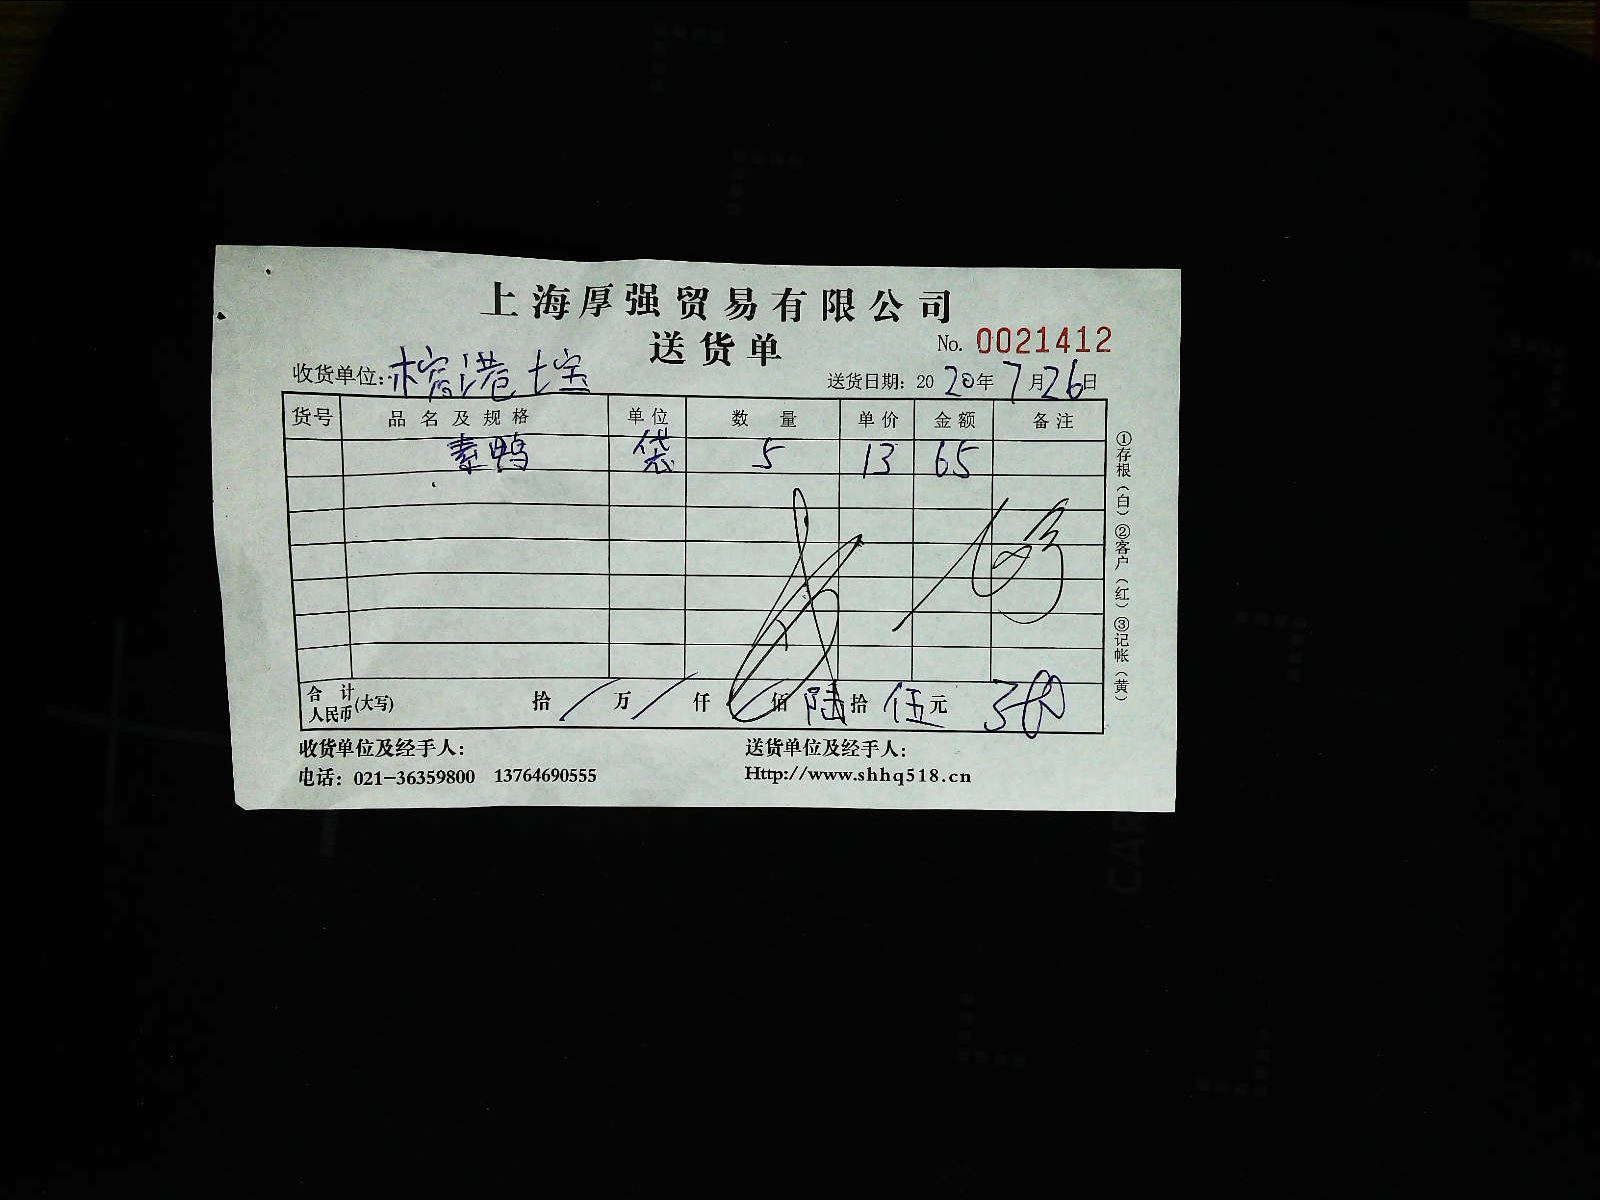 上海厚强贸易有限公司
送货单
No. 0021412
收货单位: 榕港
送货日期: 2020年7月26日
货号 品名及规格 单位 数量 单价 金额 备注
素鸭 袋 5 13 65
合计人民币(大写) 拾 / 万 / 仟 佰 陆 拾 伍 元
收货单位及经手人: 送货单位及经手人:
电话: 021-36359800 13764690555 Http://www.shhq518.cn
①存根(白)②客户(红)③记帐(黄)